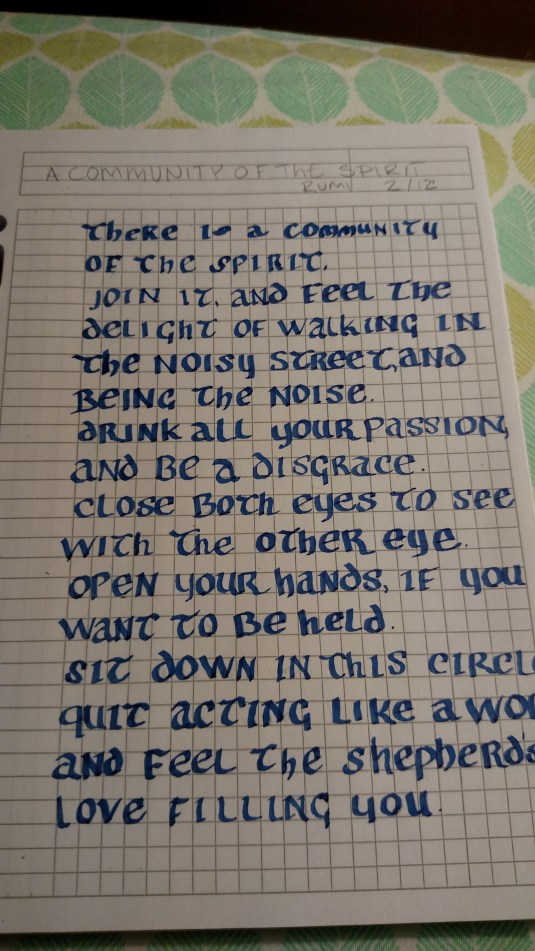 A COMMUNITY OF THE SPIRIT
RUMI 2/12
There is a community
of the spirit.
Join it, and feel the
delight of walking in
the noisy street, and
being the noise.
Drink all your passion,
and be a disgrace.
Close both eyes to see
with the other eye.
Open your hands, if you
want to be held.
Sit down in this
quit acting like a
and feel the shepherd's
love filling you.